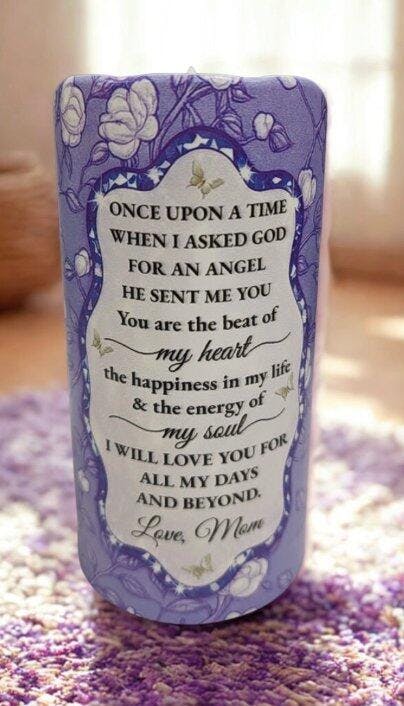 ONCE UPON A TIME
WHEN I ASKED GOD
FOR AN ANGEL
HE SENT ME YOU
You are the beat of
my heart
the happiness in my life
& the energy of
my soul
I WILL LOVE YOU FOR
ALL MY DAYS
AND BEYOND.
Love, Mom